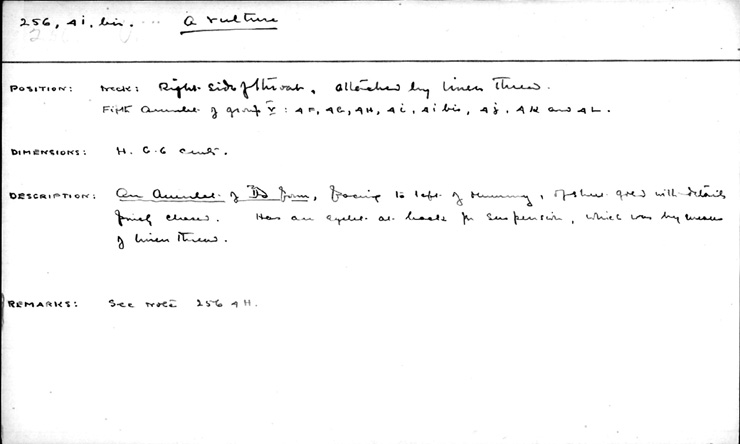 256, 4i, bis. ... A vulture
POSITION: Neck: Right side of throat, attached by linen thread.
Fifth Amulet of group V: 4F, 4G, 4H, 4i, 4i bis, 4j, 4K and 4L.
DIMENSIONS: H. 6.6 cents.
DESCRIPTION: An Amulet of form, facing to left of mummy, of sheet gold with details
finely chased. Has an eyelet at back for suspension, which was by means
of linen thread.
REMARKS: See note 256 4H.